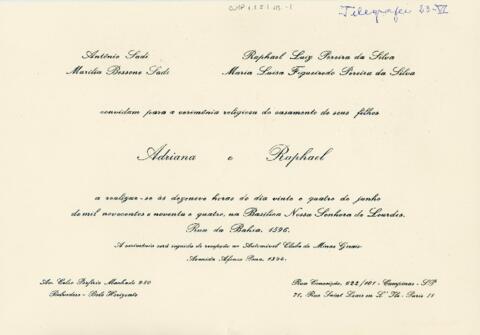 Telegrafei 23-VI
Antônio Sadi Raphael Luiz Pereira da Silva
Marilia Bessone Sadi Maria Luisa Figueiredo Pereira da Silva
convidam para a cerimônia religiosa do casamento de seus filhos
Adriana e Raphael
a realizar-se às dezenove horas do dia vinte e quatro de junho
de mil novecentos e noventa e quatro, na Basílica Nossa Senhora de Lourdes.
Rua da Bahia, 1596.
A cerimônia será seguida de recepção no Automóvel Clube de Minas Gerais
Avenida Afonso Pena, 1394.
Av. Celso Porfírio Machado 850 Rua Conceição, 622/101 - Campinas - SP
Belvedere - Belo Horizonte 71, Rue Saint Louis en L'Ile - Paris